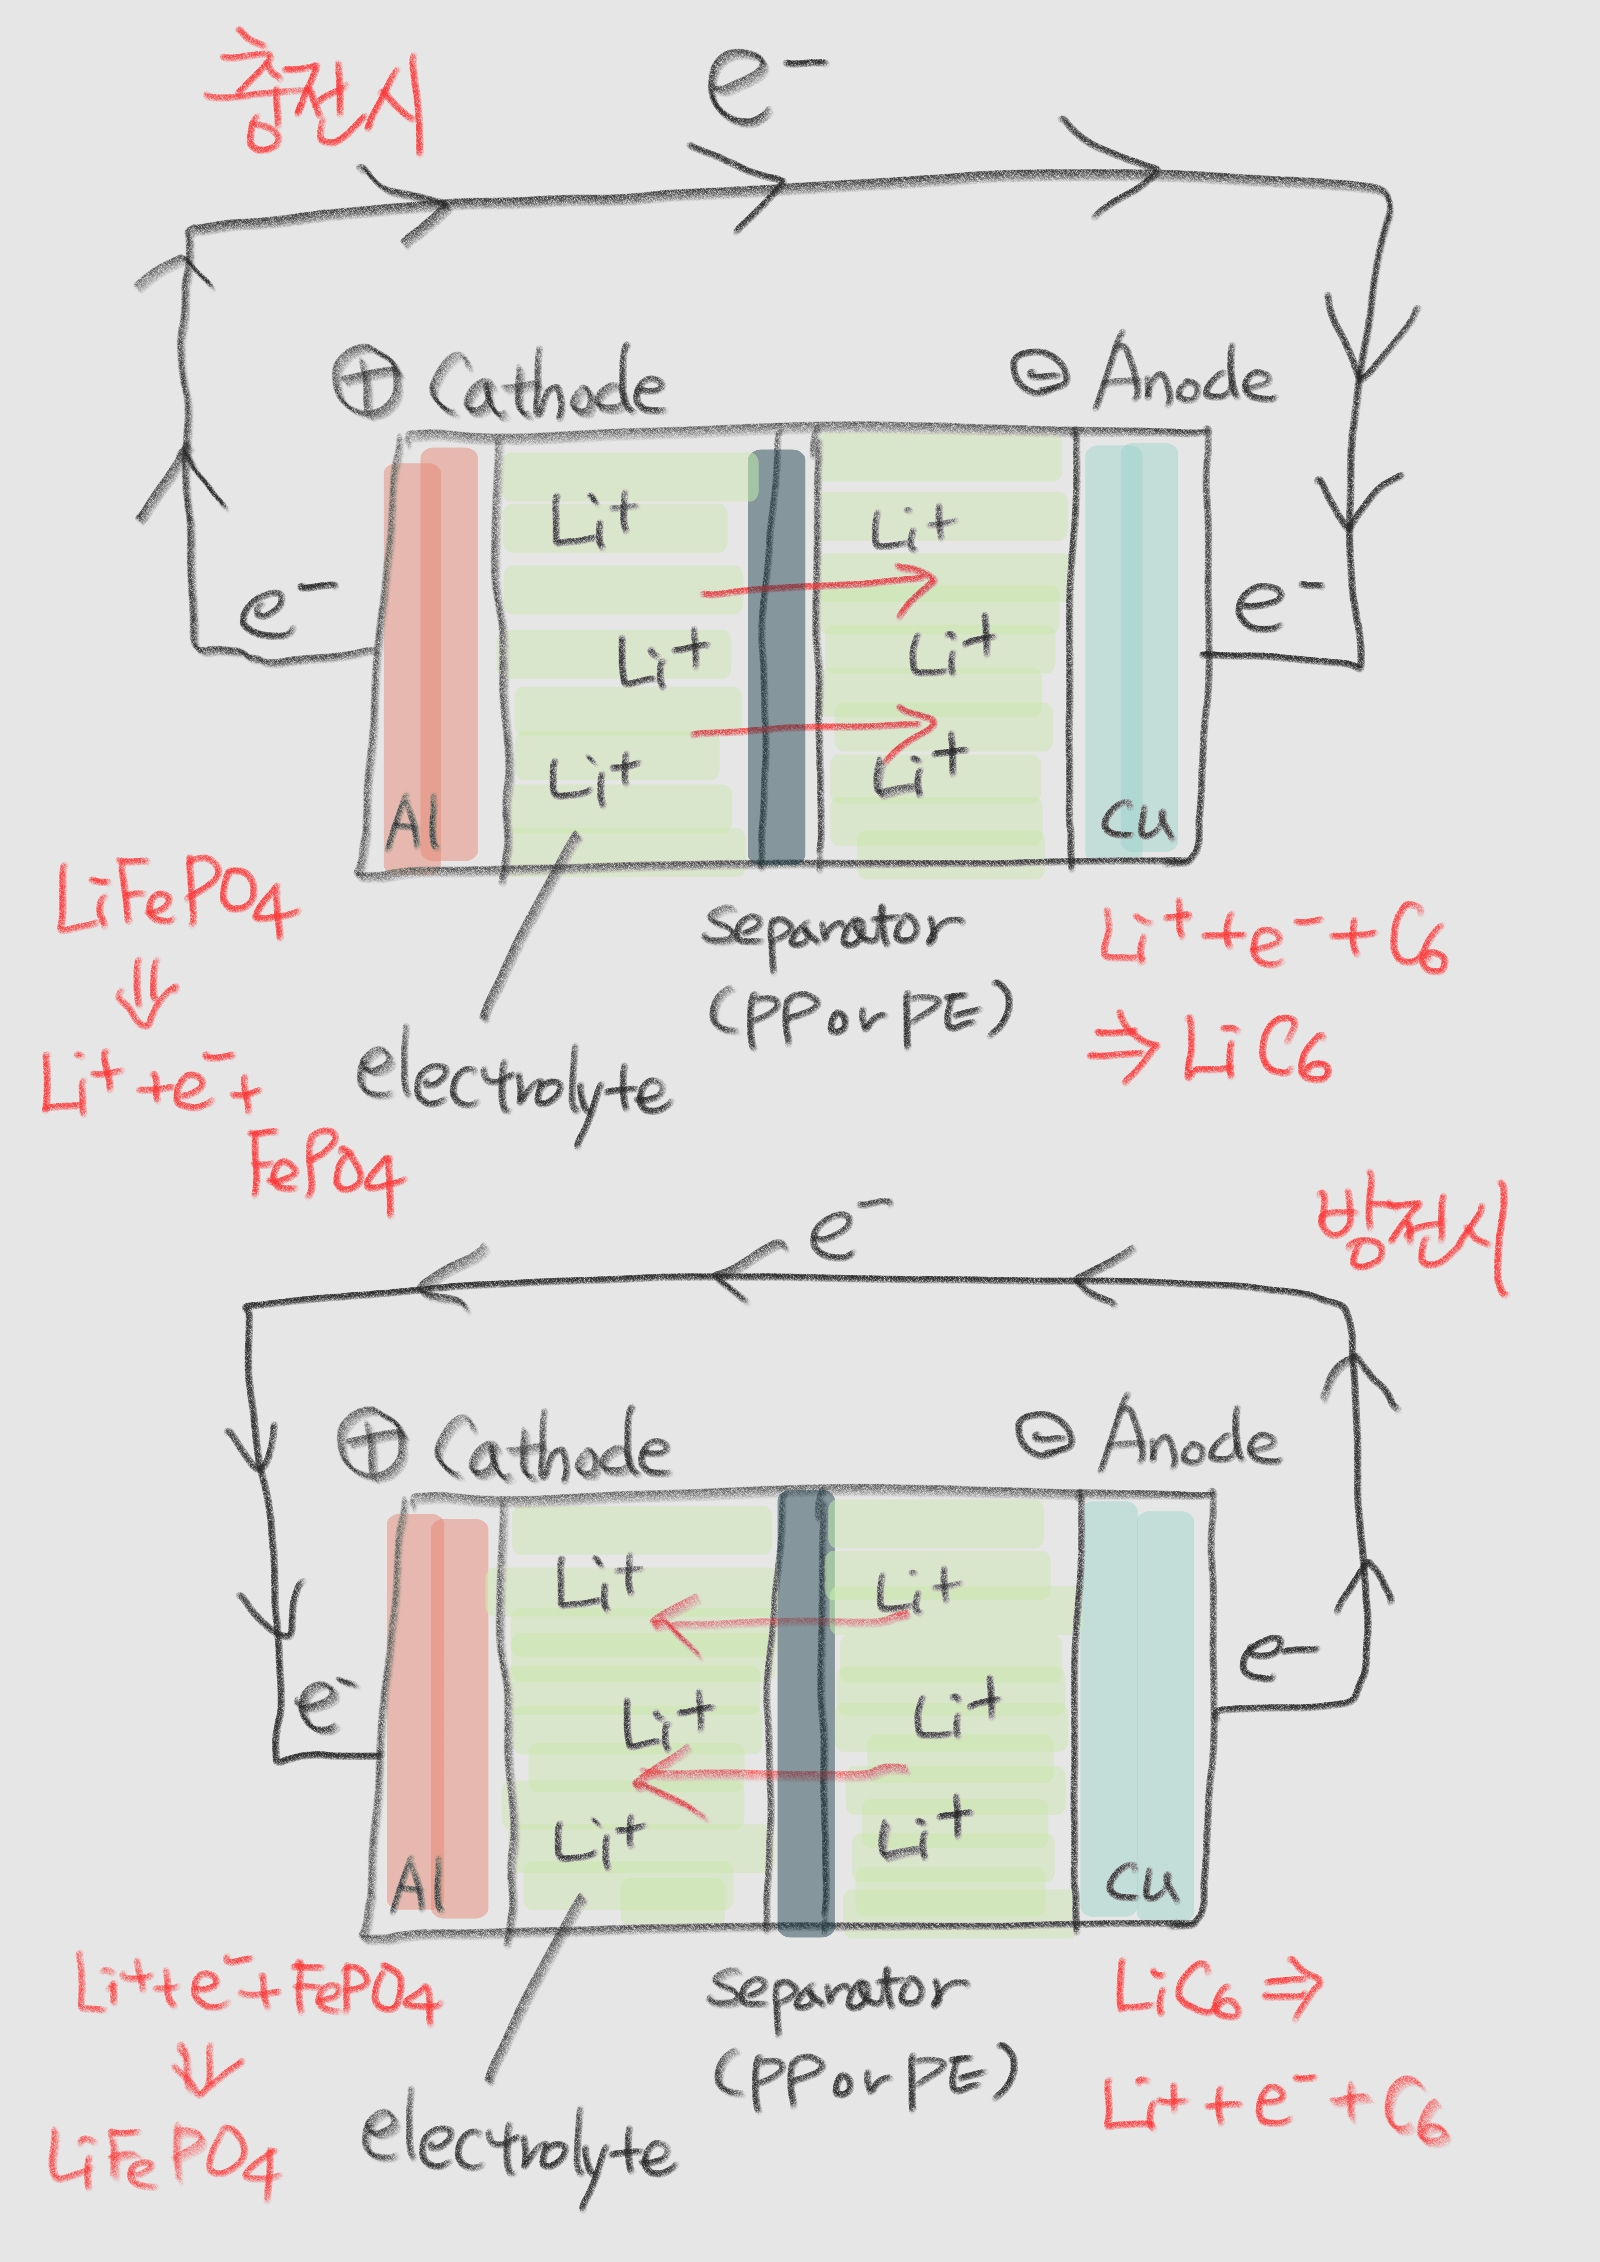 충전시
e⁻
⊕ Cathode
⊖ Anode
Li⁺
Li⁺
e⁻
e⁻
Li⁺
Li⁺
Li⁺
Li⁺
Al
Cu
LiFePO4
⇓
Li⁺+e⁻+
FePO4
electrolyte
Separator
(PP or PE)
Li⁺+e⁻+C6
⇒ LiC6
방전시
e⁻
⊕ Cathode
⊖ Anode
Li⁺
Li⁺
e⁻
e⁻
Li⁺
Li⁺
Li⁺
Li⁺
Al
Cu
Li⁺+e⁻+FePO4
⇓
LiFePO4
electrolyte
Separator
(PP or PE)
LiC6 ⇒
Li⁺+e⁻+C6